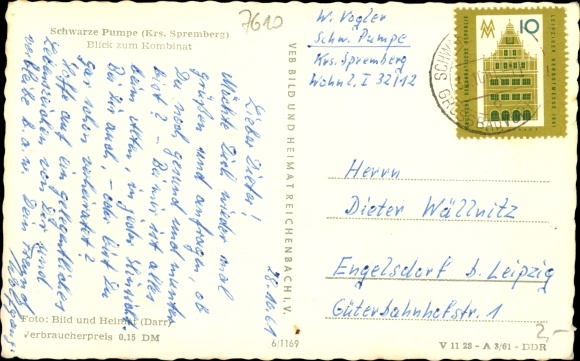 7610
Schwarze Pumpe (Krs. Spremberg)
Blick zum Kombinat
28.10.61
Lieber Dieter!
Möchte Dich wieder mal
grüßen und anfragen, ob
Du noch gesund und munter
bist? – Bei mir ist alles
beim alten, in jeder Hinsicht.
Bei Dir auch, – oder bist Du
gar schon verheiratet?
Hoffe auf ein gelegentliches
Lebenszeichen von Dir und
verbleibe b. a. w. Dein Freund
Wolfgang
Foto: Bild und Heimat (Darr)
Verbraucherpreis 0,15 DM
VEB BILD UND HEIMAT REICHENBACH I. V.
6/1169
W. Vogler
Schw. Pumpe
Krs. Spremberg
Wohnl. I 32/12
MM 10
LEIPZIGER HERBSTMESSE 1961
Herrn
Dieter Wällnitz
Engelsdorf b. Leipzig
Güterbahnhofstr. 1
2,-
V 11 28 - A 3/61 - DDR